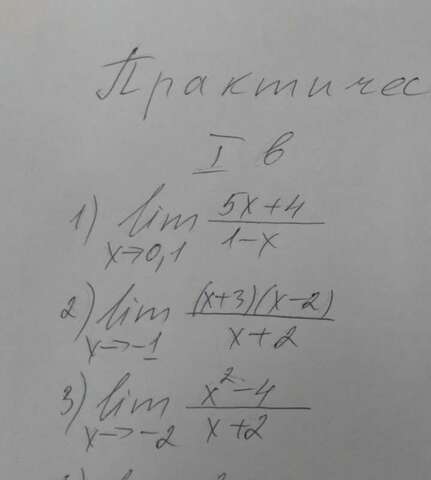 Практичес
I в
1) lim x→0,1 (5x+4)/(1-x)
2) lim x→-1 ((x+3)(x-2))/(x+2)
3) lim x→-2 (x²-4)/(x+2)